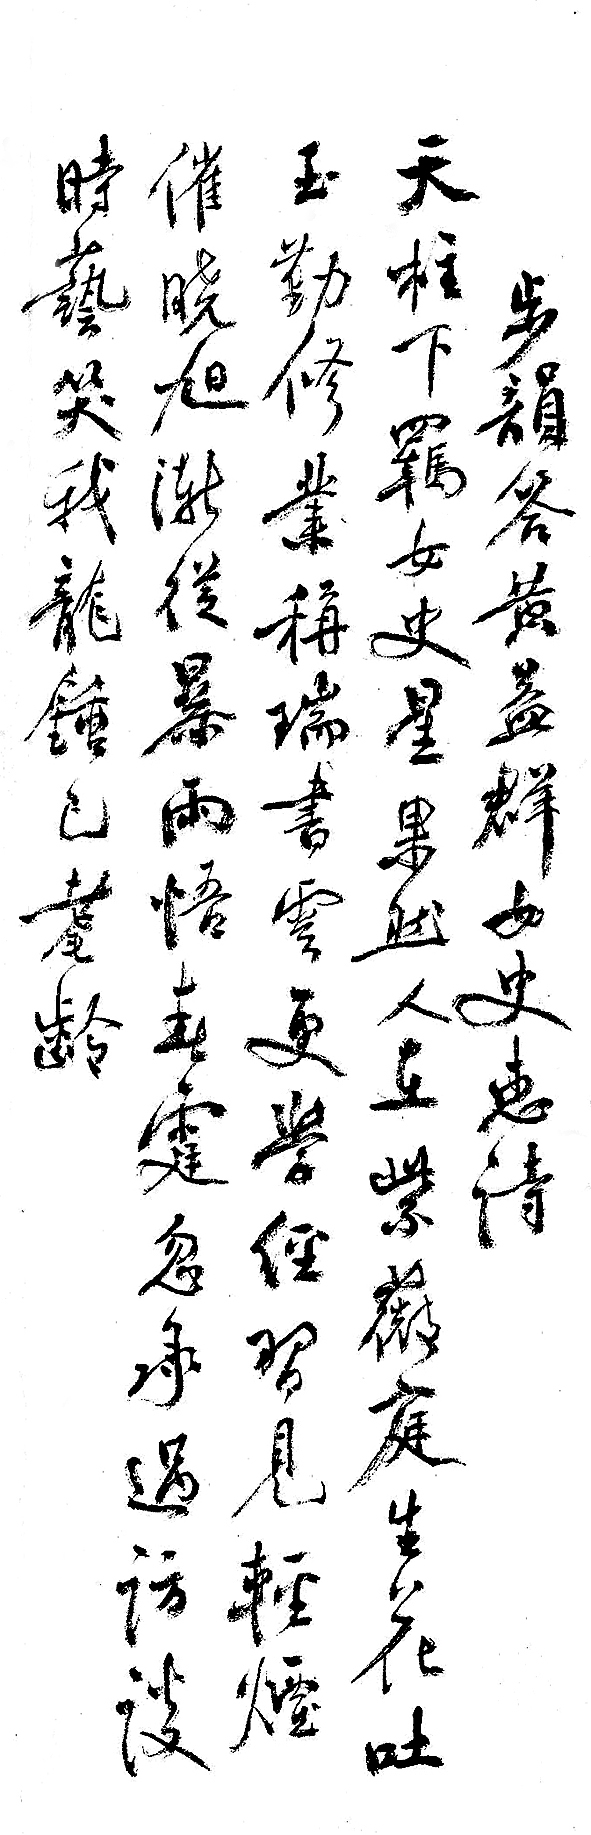 步韻答黃益群女史惠詩
天柱下羈女史星果然人在紫薇庭生花吐
玉勤修業稱瑞書雲更學經習見輕煙
催曉旭漸從暴雨悟春霆忽承過訪談
時藝笑我龍鍾已耄齡